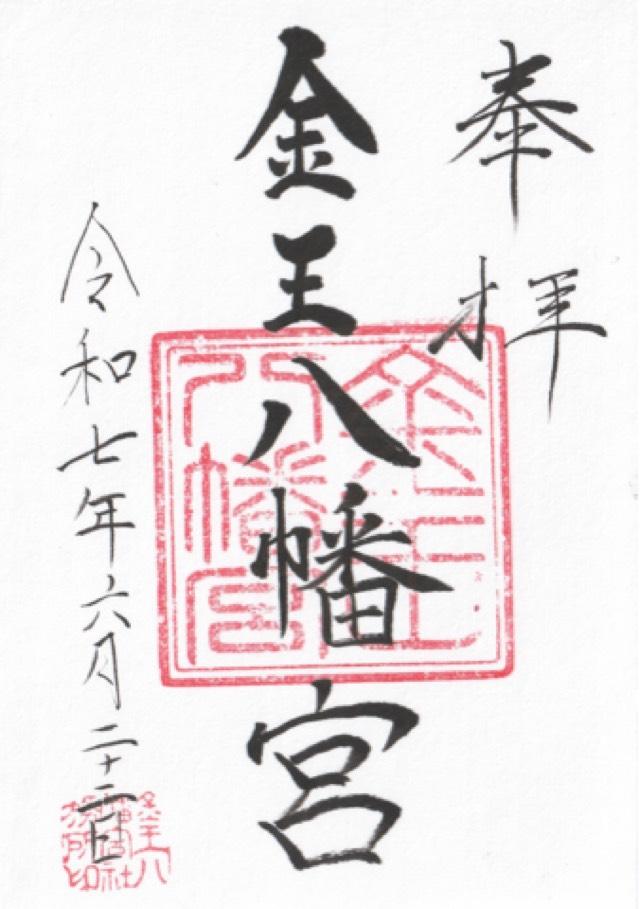 奉拝
金王八幡宮
令和七年六月二十二日
金王八幡宮
金王八幡宮社務所印